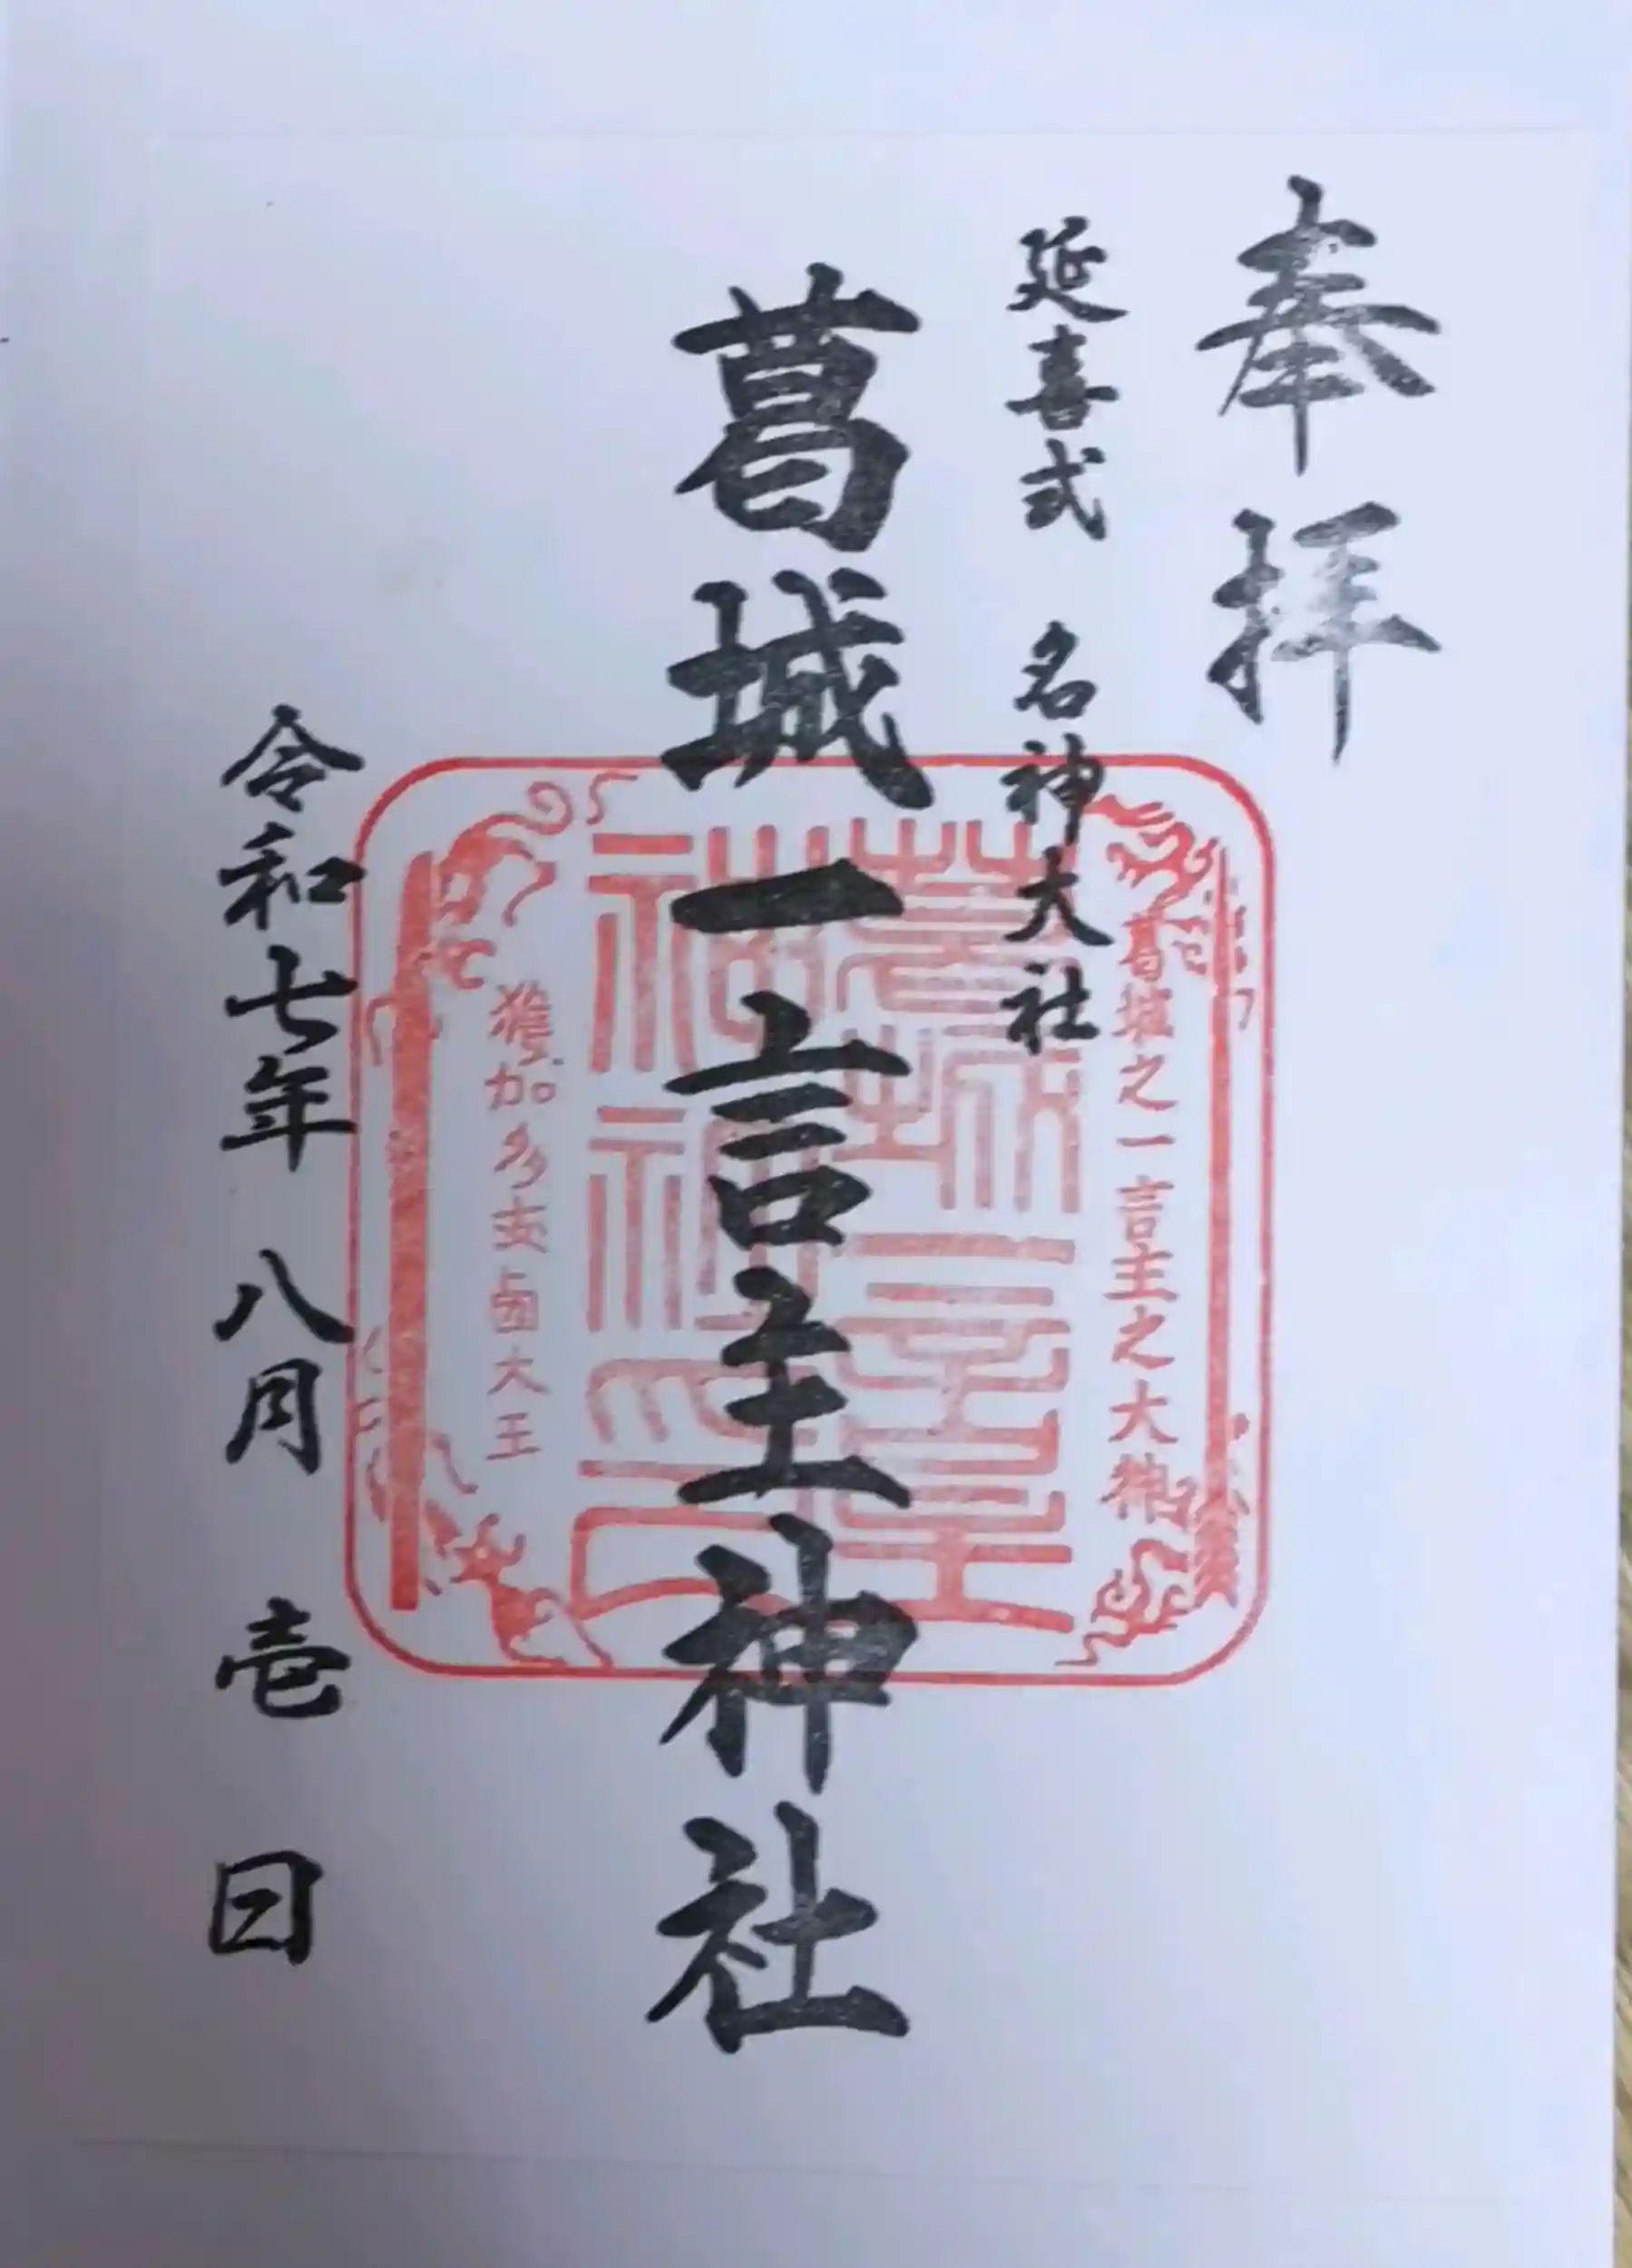 奉拝
延喜式 名神大社
葛城之一言主之大神
葛城一言主神社
獲加多支鹵大王
令和七年 八月 壱 日